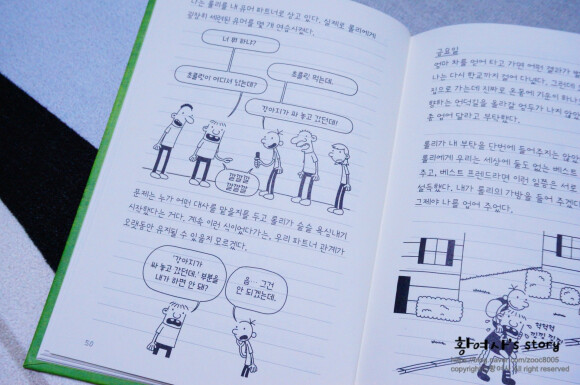 나는 롤리를 내 유머 파트너로 삼고 있다. 실제로 롤리에게
굉장히 세련된 유머를 몇 개 연습시켰다.
너 뭐 하냐?
초콜릿 먹는데.
초콜릿이 어디서 났는데?
강아지가 싸 놓고 갔던데!
깔깔깔
깔깔깔
문제는 누가 어떤 대사를 맡을지를 두고 롤리가 슬슬 욕심내기
시작했다는 거다. 계속 이런 식이었다가는, 우리 파트너 관계가
오랫동안 유지될 수 있을지 모르겠다.
'강아지가
싸 놓고 갔던데.' 부분을
내가 하면 안 돼?
음... 그건
안 되겠는데.
50
금요일
엄마 차를 얻어 타고 가면 어떤 결과가
나는 다시 학교까지 걸어 다녔다. 그런데
집으로 가는데 진짜로 온몸에 기운이 하나
향하는 언덕길을 올라갈 엄두가 나지 않았
좀 업어 달라고 부탁했다.
롤리가 내 부탁을 단번에 들어주지는 않았
롤리에게 우리는 세상에 둘도 없는 베스트
추고, 베스트 프렌드라면 이런 일쯤은 서로
설득했다. 내가 롤리의 가방을 들어 주겠다
그제야 나를 업어 주었다.
황여사's story